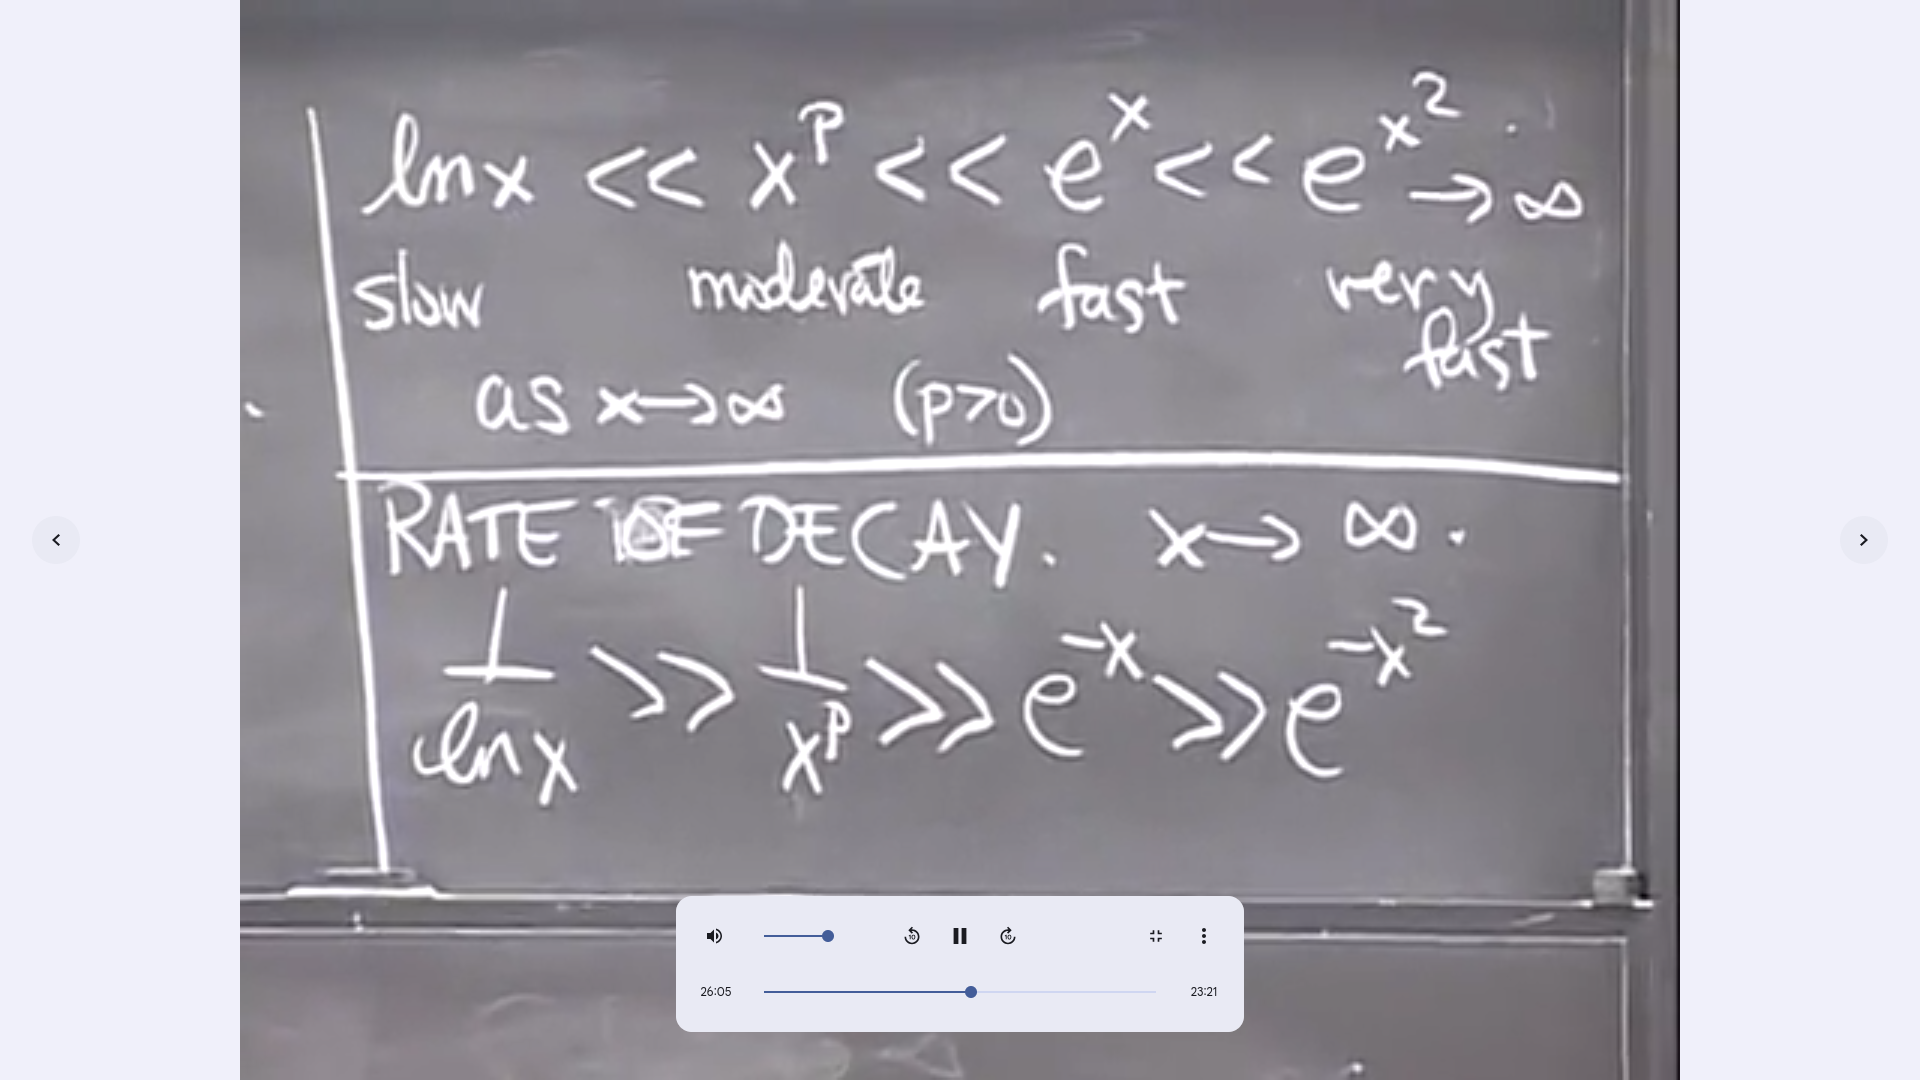 ln x << x^p << e^x << e^x^2 → ∞
slow moderate fast very fast
as x→∞ (p>0)
RATE OF DECAY. x→ ∞.
1/ln x >> 1/x^p >> e^-x >> e^-x^2
26:05 23:21